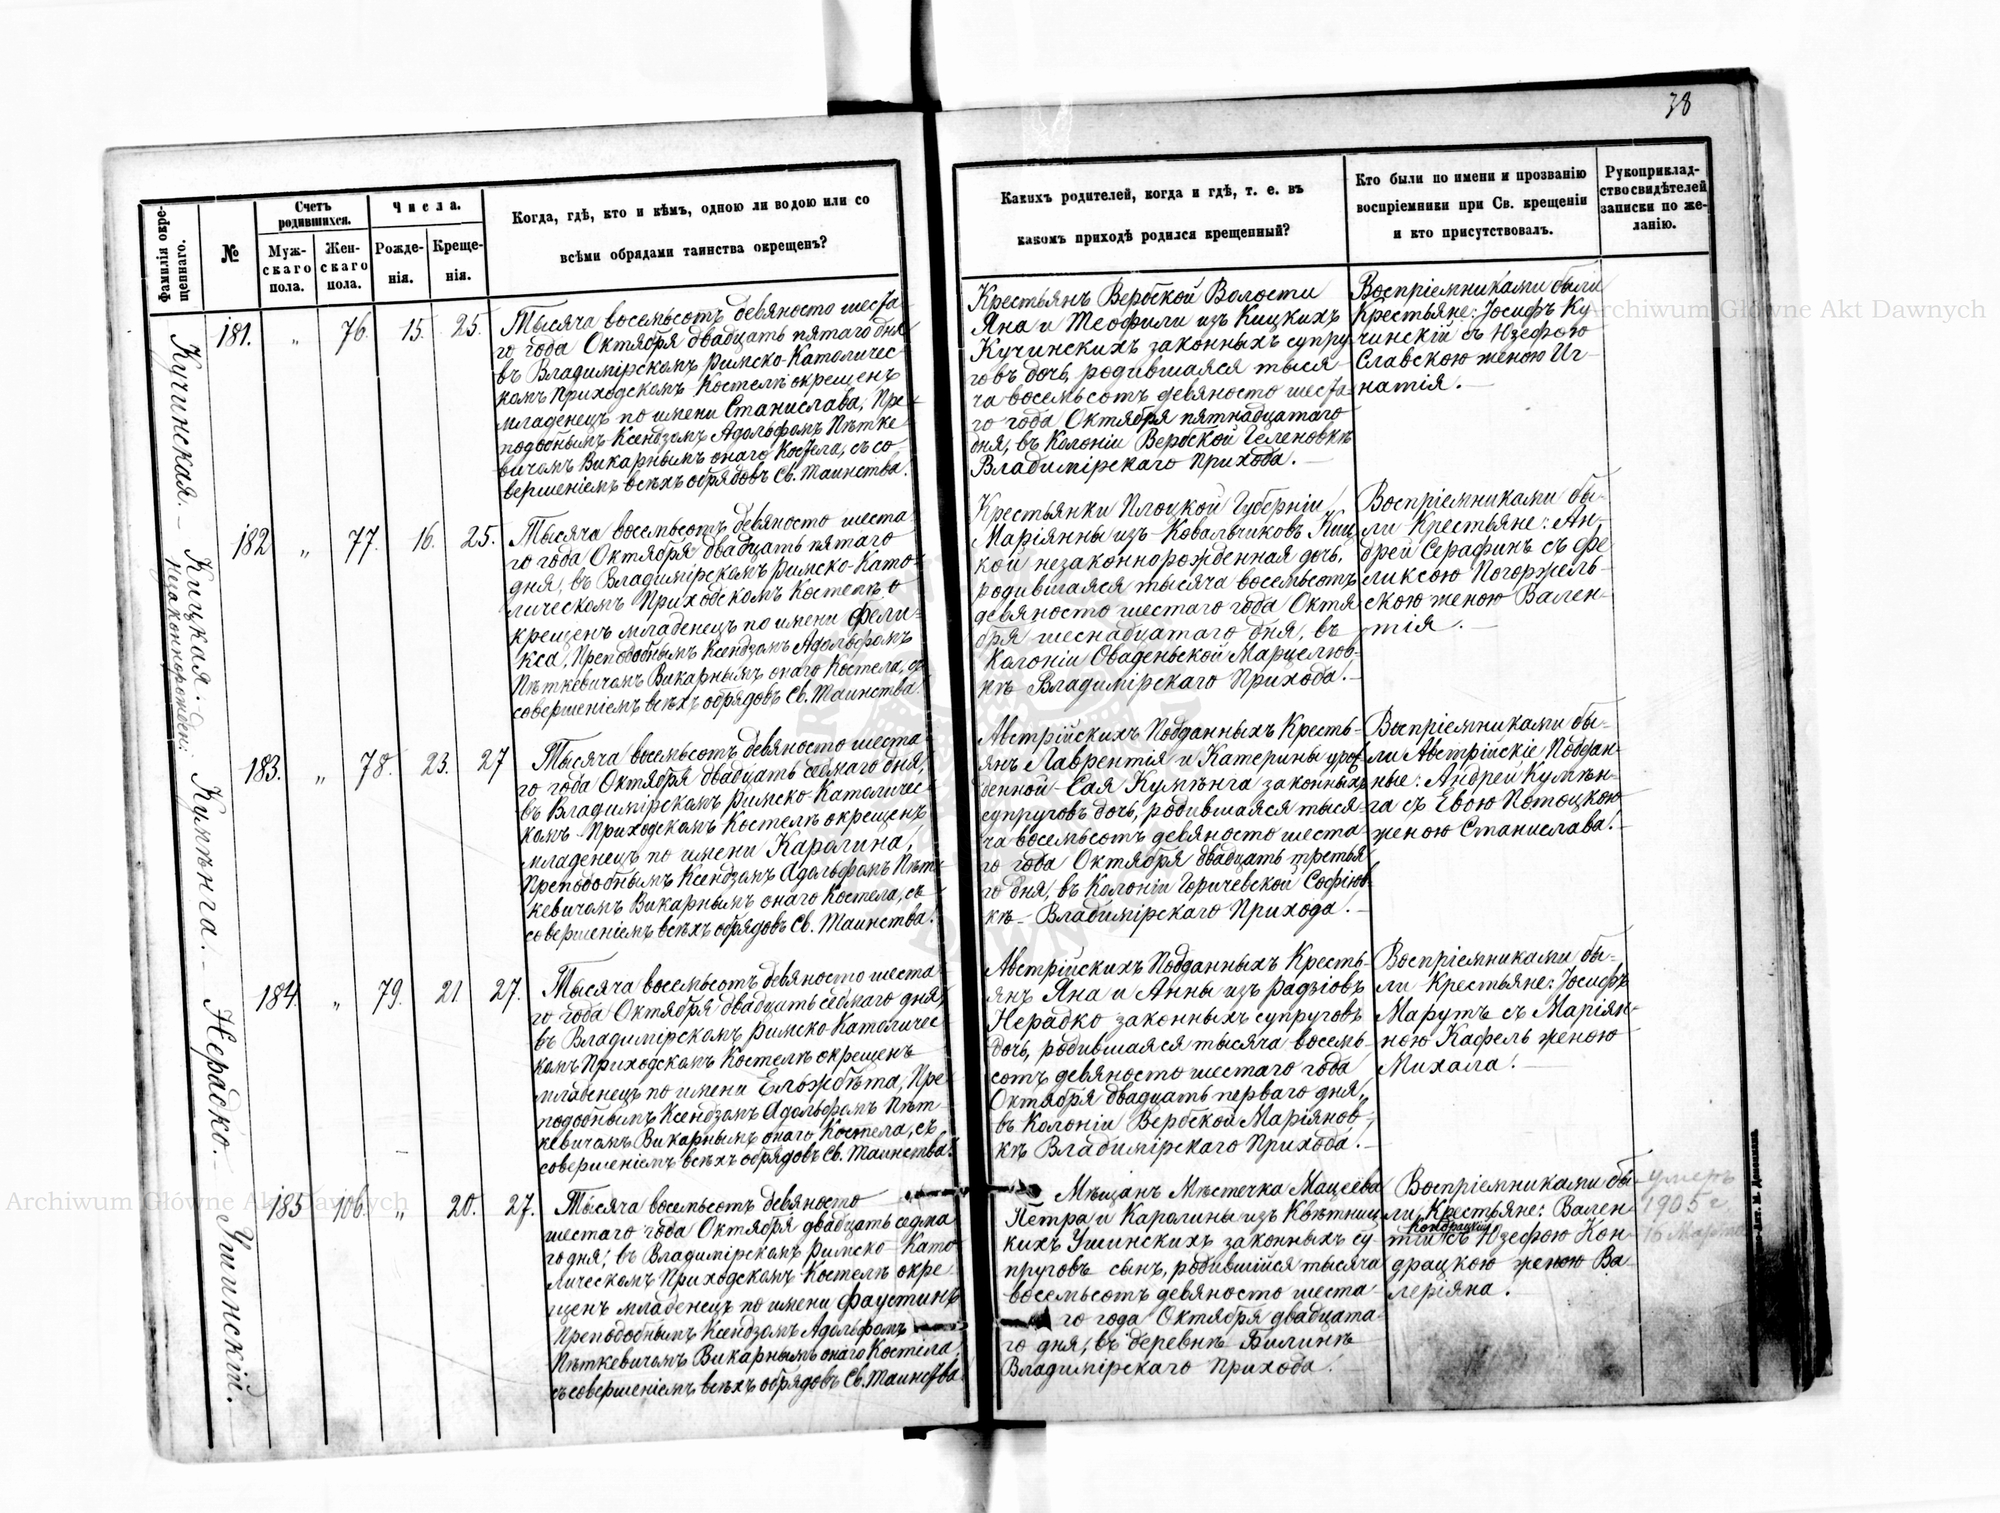 38
Фамилія окре-
щеннаго.
№
Счетъ
родившихся.
Муж-
скаго
пола.
Жен-
скаго
пола.
Числа.
Рожде-
нія.
Креще-
нія.
Когда, гдѣ, кто и кѣмъ, одною ли водою или со
всѣми обрядами таинства окрещенъ?
Какихъ родителей, когда и гдѣ, т. е. въ
какомъ приходѣ родился крещенный?
Кто были по имени и прозванію
воспріемники при Св. крещеніи
и кто присутствовалъ.
Рукоприклад-
ство свидѣтелей
записки по же-
ланію.
Кучинская.
181. " 76. 15. 25.
Тысяча восемьсотъ девяносто шеста
го года Октября двадцать пятаго дня
въ Владимірскомъ Римско-Католичес-
комъ Приходскомъ Костелѣ окрещенъ
младенецъ по имени Станислава, Пре-
подобнымъ Ксендзомъ Адольфомъ Пѣтке-
вичомъ Викарнымъ онаго Костела, съ со
вершеніемъ всѣхъ обрядовъ Св. Таинства.
Крестьянъ Вербской Волости
Яна и Теофили изъ Кицкихъ
Кучинскихъ законныхъ супру
говъ дочь, родившаяся тыся
ча восемьсотъ девяносто шеста-
го года Октября пятнадцатаго
дня, въ Колоніи Вербской Геленовкѣ
Владимірскаго Прихода. —
Воспріемниками были
Крестьяне: Іосифъ Ку
чинскій съ Юзефою
Славскою женою Иг-
натія. —
Кицкая.
незаконнорожден:
182 " 77. 16. 25.
Тысяча восемьсотъ девяносто шеста-
го года Октября двадцать пятаго
дня, въ Владимірскомъ Римско-Като-
лическомъ Приходскомъ Костелѣ о
крещенъ младенецъ по имени Фели-
кса, Преподобнымъ Ксендзомъ Адольфомъ
Пѣткевичомъ Викарнымъ онаго Костела, съ
совершеніемъ всѣхъ обрядовъ Св. Таинства.
Крестьянки Плоцкой Губерніи
Маріянны изъ Ковальчиковъ Киц
кой незаконнорожденная дочь,
родившаяся тысяча восемьсотъ
девяносто шестаго года Октя
бря шеснадцатаго дня, въ
Колоніи Оваденьской Марцелюв-
кѣ Владимірскаго Прихода. —
Воспріемниками бы-
ли Крестьяне: Ан-
дрей Серафинъ съ Фе
ликсою Погоржель-
скою женою Вален-
тія. —
Кумѣнга. —
183. " 78. 23. 27
Тысяча восемьсотъ девяносто шеста-
го года Октября двадцать седмаго дня,
въ Владимірскомъ Римско-Католичес-
комъ Приходскомъ Костелѣ окрещенъ
младенецъ по имени Каролина,
Преподобнымъ Ксендзомъ Адольфомъ Пѣт-
кевичомъ Викарнымъ онаго Костела, съ
совершеніемъ всѣхъ обрядовъ Св. Таинства.
Австрійскихъ Подданныхъ Кресть-
янъ Лаврентія и Катерины урож
денной Сая Кумѣнга законныхъ
супруговъ дочь, родившаяся тыся-
ча восемьсотъ девяносто шеста-
го года Октября двадцать третья
го дня, въ Колоніи Горичевской Софіюв-
кѣ Владимірскаго Прихода. —
Воспріемниками бы-
ли Австрійскіе Поддан-
ные: Андрей Кумѣн-
га съ Евою Потоцкою
женою Станислава. —
Нерадко.
184. " 79. 21 27.
Тысяча восемьсотъ девяносто шеста-
го года Октября двадцать седмаго дня,
въ Владимірскомъ Римско-Католичес-
комъ Приходскомъ Костелѣ окрещенъ
младенецъ по имени Ельжбѣта, Пре-
подобнымъ Ксендзомъ Адольфомъ Пѣт-
кевичомъ Викарнымъ онаго Костела, съ
совершеніемъ всѣхъ обрядовъ Св. Таинства.
Австрійскихъ Подданныхъ Кресть-
янъ Яна и Анны изъ Радзіовъ
Нерадко законныхъ супруговъ
дочь, родившаяся тысяча восемь-
сотъ девяносто шестаго года
Октября двадцать перваго дня,
въ Колоніи Вербской Маріянов-
кѣ Владимірскаго Прихода. —
Воспріемниками бы-
ли Крестьяне: Іосифъ
Марутъ съ Маріян-
ною Кафель женою
Михала. —
Ушинскій. —
185 106. " 20. 27.
Тысяча восемьсотъ девяносто
шестаго года Октября двадцать седма
го дня, въ Владимірскомъ Римско-Като
лическомъ Приходскомъ Костелѣ окре
щенъ младенецъ по имени Фаустинъ
Преподобнымъ Ксендзомъ Адольфомъ
Пѣткевичомъ Викарнымъ онаго Костела,
съ совершеніемъ всѣхъ обрядовъ Св. Таинства
Мѣщанъ Мѣстечка Мацеева
Петра и Каролины изъ Квѣтниц
кихъ Ушинскихъ законныхъ су-
пруговъ сынъ, родившійся тысяча
восемьсотъ девяносто шеста-
го года Октября двадцата-
го дня, въ деревнѣ Билинѣ
Владимірскаго Прихода.
Воспріемниками бы
ли Крестьяне: Вален-
Кондрацкій
тій съ Юзефою Кон-
драцкою женою Ва
леріяна.
умеръ
1905 г
16 Марта
Archiwum Główne Akt Dawnych
Archiwum Główne Akt Dawnych